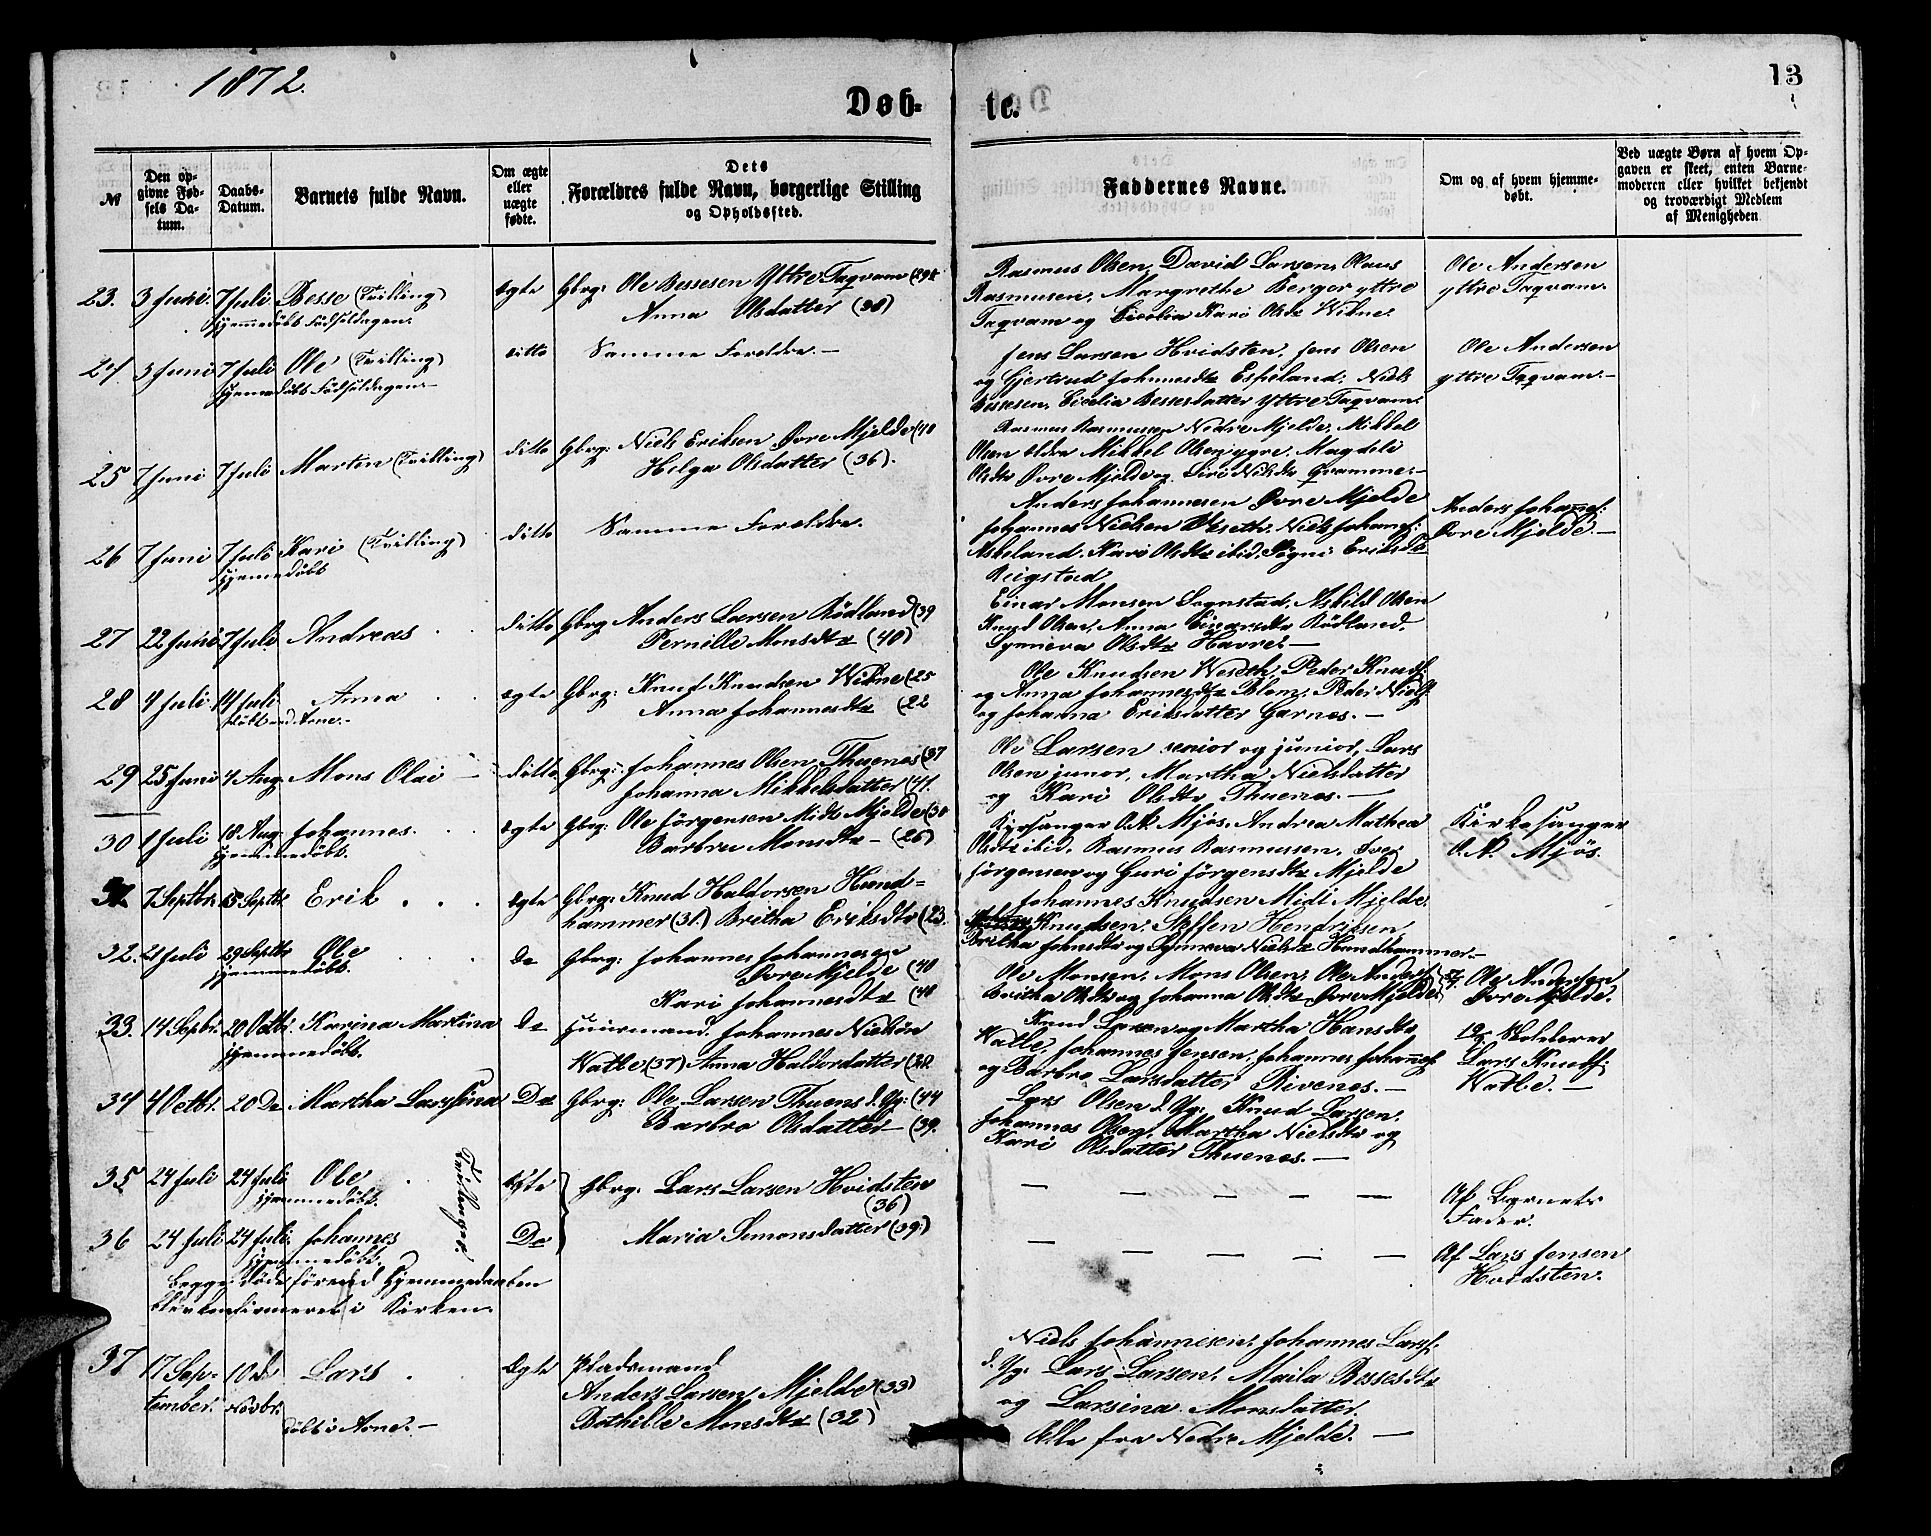 1872.
13
Døb-
te.
№
Den op-
givne Fød-
sels Da-
tum.
Daabs-
Datum.
Barnets fulde Navn.
Om ægte
eller
uægte
fødte.
Dets
Forældres fulde Navn, borgerlige Stilling
og Opholdssted.
Faddernes Navne.
Om og af hvem hjemme-
døbt.
Ved uægte Børn af hvem Op-
gaven er skeet, enten Barne-
moderen eller hvilket bekjendt
og troværdigt Medlem
af Menigheden
23. 3 Juni. 7 Juli Besse (Tvilling) ægte Gbrg: Ole Bessesen Yttre Taqvam
hjemmedøbt Fødselsdagen.
Anna Olsdatter (38)
Rasmus Olsen, David Larsen, Olaus
Rasmusen, Margrethe Berger yttre
Taqvam og Cicelia Kari Olsdtr Wikne.
Ole Andersen
yttre Taqvam.
24 3 Juni 7 Juli Ole (Tvilling) ditto Samme Foreldre. —
hjemmedøbt Fødselsdagen. —
Jens Larsen Hvidsten, Jens Olsen
og Gjertrud Johannesdtr Espeland, Niels
Bessesen, Cicelia Bessesdatter Yttre Taqvam.
Ole Andersen
yttre Taqvam. —
25 7 Juni 7 Juli Marten (Tvilling) ditto Gbrg: Niels Eriksen Øvre Mjelde (40
Helga Olsdatter (36).
Rasmus Rasmussen Nedre Mjelde, Mikkel
Olsen eldre Mikkel Olsen yngre, Magdeli
Olsdtr Øvre Mjelde og Siri Nielsdtr Qvamme. —
26 7 Juni 7 Juli Kari (Tvilling) ditto Samme Foreldre.
hjemmedøbt
Anders Johannesen Øvre Mjelde
Johannes Nielsen Niels Johanes:
Askeland. Kari Olsdtr ibid. Signi Eriksdtr
Reigstad
Anders Johanes:
Øvre Mjelde. —
27 22 Juni 7 Juli Andreas ditto Gbrg Anders Larsen Rødland (39
Pernille Monsdtr (40)
Einar Monsen Sognstad, Askild Olsen
Knud Olsen, Anna Einarsdtr Rødland.
Synneva Olsdtr Havre. —
28 4 Juli 14 Juli Anna ægte Gbrg: Knut Knudsen Wikne (25
døbt ved Arne. —
Anna Johannesdtr (22
Ole Knudsen Weseth, Peder Knuds:
og Anna Johannesdtr Blom, Peder Niels:
og Johanna Eriksdatter Garnes. —
29 25 Juni 4 Aug Mons Olai — ditto Gbrg: Johannes Olsen Thuenes (37
Johanna Mikkelsdatter (41.
Ole Larsen senior og junior, Lars
Olsen junor, Martha Nielsdatter
og Kari Olsdtr Thuenes. —
30 1 Juli 18 Aug. Johannes. ægte Gbrg: Ole Jörgensen Midt Mjelde (30
hjemmedøbt.
Barbru Monsdtr — (26)
Kirsanger O.A. Mjøs, Andrea Mathea
Olsdtr ibid, Rasmus Rasmussen, Iver
Jörgensen og Guri Jörgensdtr Mjelde
Kirkesanger
O.A. Mjøs.
31. 7 Septbr. 15 Septbr Erik ægte Gbrg: Knud Haldorsen Hund-
hammer (31.) Britha Eriksdtr (23.
Johannes Knudsen Midt Mjelde,
Knudsen, Steffen Hendriksen,
Britha Johnsdtr og Synneva Nielsdtr Hundhammer. —
32. 21 Juli 29 Septbr Ole Do Gbrg: Johannes Johannesen
hjemmedøbt.
Øvre Mjelde (40
Kari Johannesdtr (40
Ole Monsen, Mons Olsen, Ole Anders:
Britha Olsdtr og Johanna Olsdtr Øvre Mjelde
Ole Andersen
Øvre Mjelde.
33. 14 Sepbr. 20 Octbr. Karina Martina Do Huusmand. Johannes Nielsen
hjemmedøbt.
Watle (37) Anna Haldordatter (32.
Knud Larsen og Martha Hansdtr
Watle, Johannes Jensen, Johannes Johanes:
og Barbro Larsdatter Rivenes. —
Skolelærer
Lars Knuds:
Watle. —
34 4 Octbr. 20 Do Martha Larssina Do Gbrg: Ole Larsen Thuens d. Yg: (44
Barbro Olsdatter — (39.
Lars Olsen d. Yg: Knud Larsen,
Johannes Olsen, Martha Nielsdtr og
Kari Olsdatter Thuenes. —
35 24 Juli 24 Juli Ole ægte Gbrg: Lars Larsen Hvidsten
hjemmedøbt.
(36)
Tvillinger.
Af Barnets
Fader.
36 24 Juli 24 Juli. Johannes Do Maria Simonsdatter (39.)
hjemmedøbt.
Begge døde før end Hjemmedaaben
blev konfirmeret i Kirken.
Af Lars Jensen
Hvidsten.
37 17 Sep- 10de Lars ægte Pladsmand
tember. Novbr.
Anders Larsen Mjelde (33)
døbt i Arne. —
Bothille Monsdtr (32)
Niels Johannesen, Johannes Lars:
d. Yg. Lars Larsen, Maila Bessesdtr
og Larsina Monsdatter.
Alle fra Nedre Mjelde. —